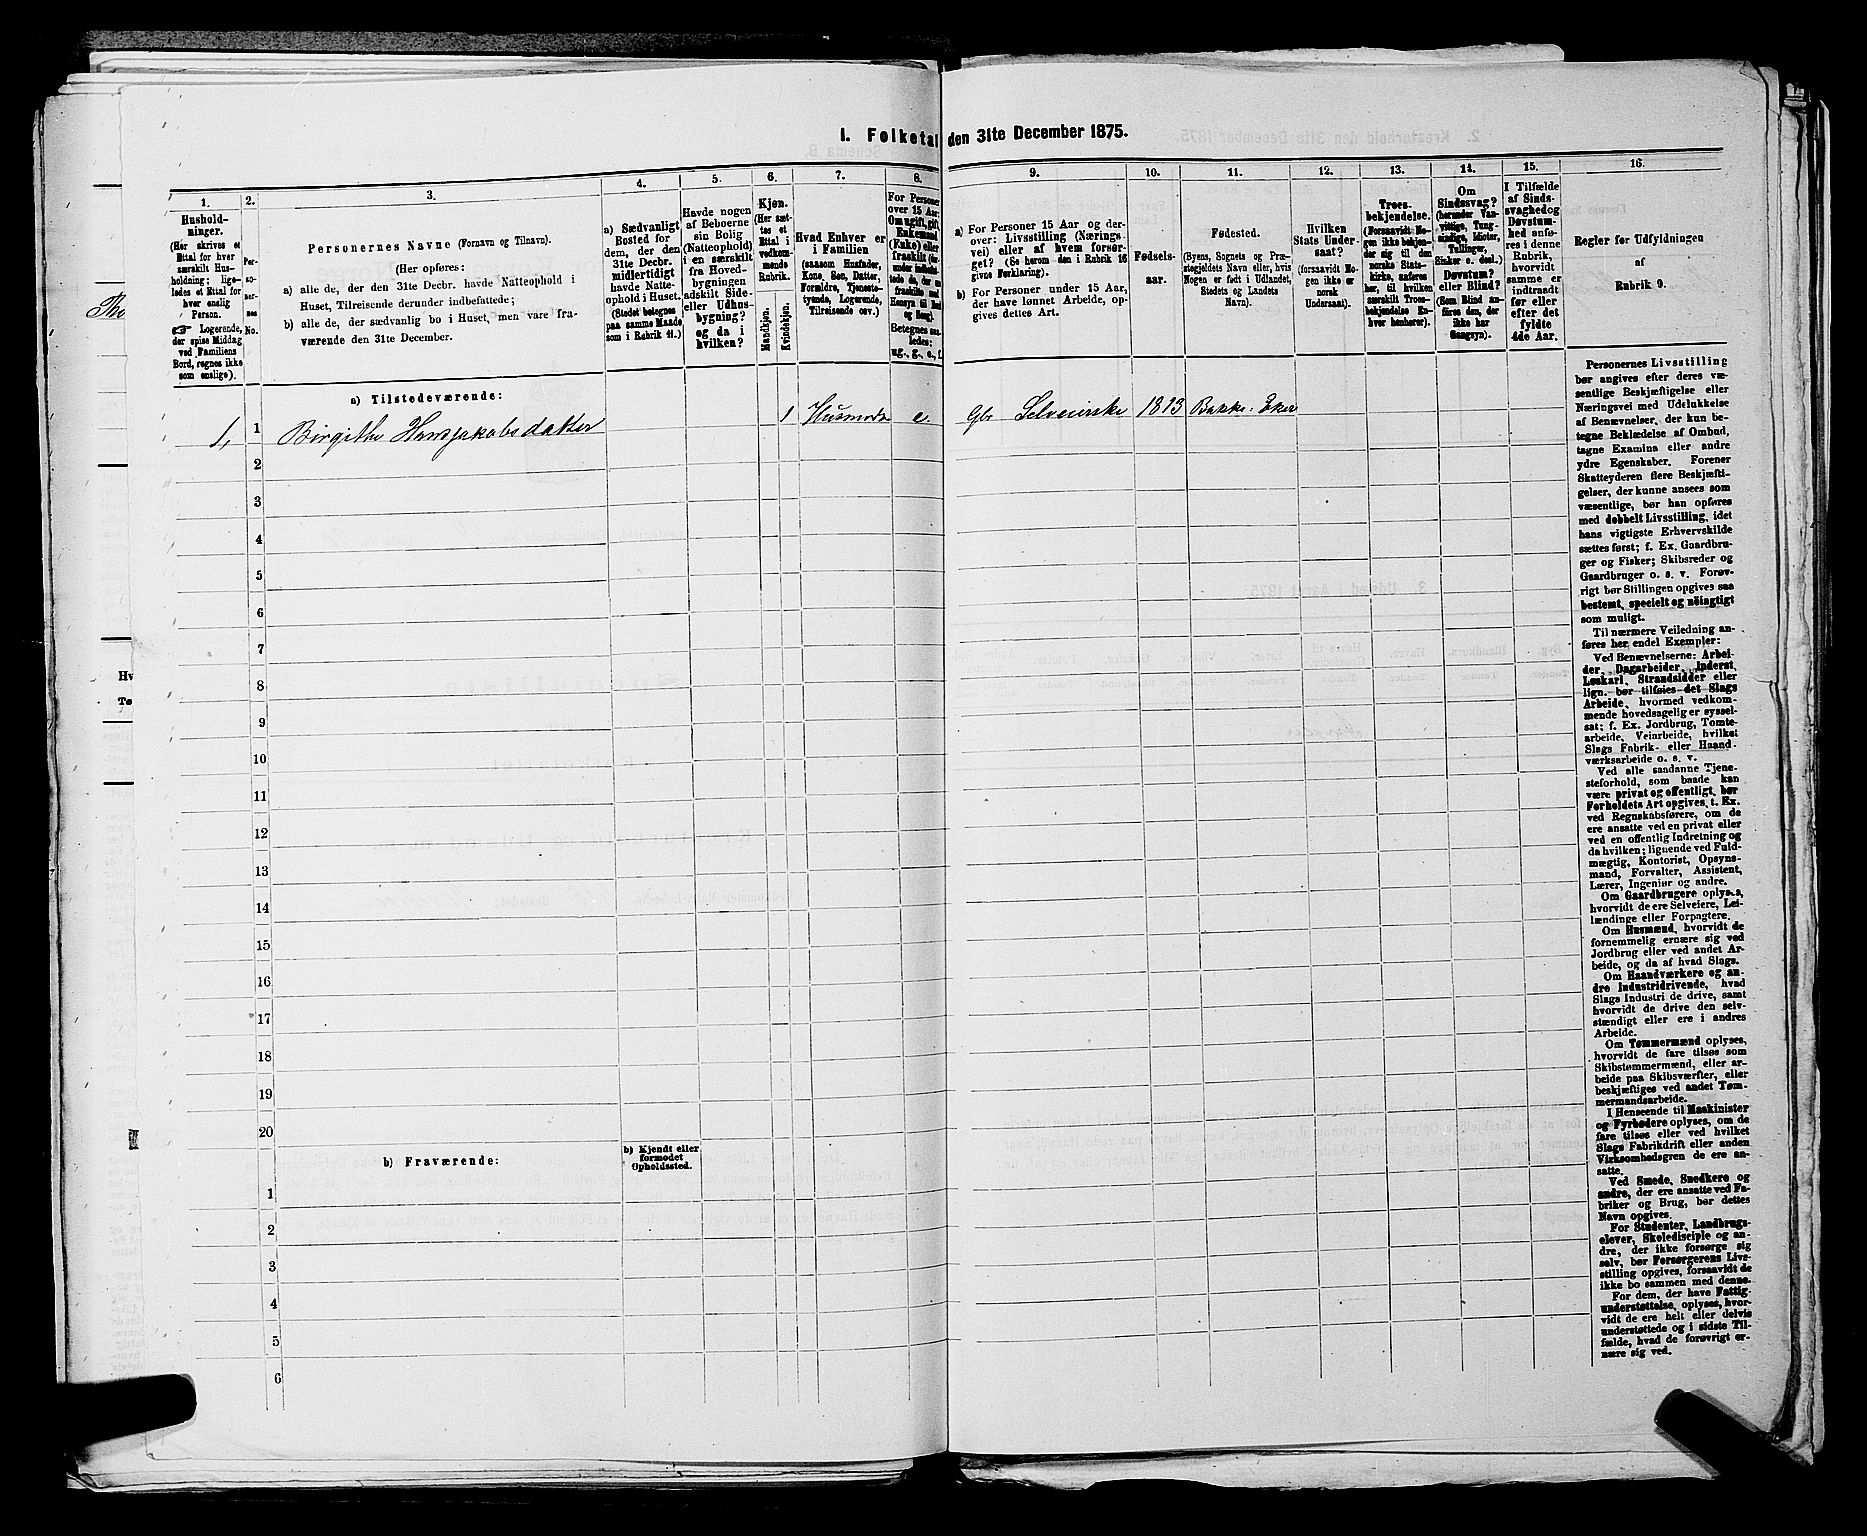 I. Folketal den 31te December 1875.
1.
Hushold-
ninger.
(Her skrives et
Ettal for hver
særskilt Hus-
holdning; lige-
ledes et Ettal for
hver enslig
Person.
☞ Logerende,
der spise Middag
ved Familiens
Bord, regnes ikke
som enslige).
2.
Per-
so-
ner-
nes
No.
3.
Personernes Navne (Fornavn og Tilnavn).
(Her opføres:
a) alle de, der den 31te Decbr. havde Natteophold i
Huset, Tilreisende derunder indbefattede;
b) alle de, der sædvanlig bo i Huset, men vare fra-
værende den 31te December.
4.
a) Sædvanligt
Bosted for
dem, der den
31te Decbr.
midlertidigt
havde Natte-
ophold i Huset.
(Stedet betegnes
paa samme Maade
som i Rubrik 11.)
5.
Havde nogen
af Beboerne
sin Bolig
(Natteophold)
i en særskilt
fra Hoved-
bygningen
adskilt Side-
eller Udhus-
bygning?
og da i
hvilken?
6.
Kjøn.
(Her sæt-
tes et
Ettal i
vedkom-
mende
Rubrik.
Mandkjøn.
Kvindekjøn.
7.
Hvad Enhver er
i Familien
(saasom Husfader,
Kone, Søn, Datter,
Forældre, Tjeneste-
tyende, Logerende,
Tilreisende osv.)
8.
For Personer
over 15 Aar:
Om ugift, gift,
Enkemand
(Enke) eller
fraskilt
Betegnes saa-
ledes:
ug., g., e., f.
9.
a) For Personer 15 Aar og der-
over: Livsstilling (Nærings-
vei) eller af hvem forsør-
get? (Se herom den i Rubrik 16
givne Forklaring).
b) For Personer under 15 Aar,
der have lønnet Arbeide, op-
gives dettes Art.
10.
Fødsels-
aar.
11.
Fødested.
(Byens, Sognets og Præ-
stegjeldets Navn eller, hvis
Nogen er født i Udlandet,
Stedets og Landets
Navn).
12.
Hvilken
Stats Under-
saat?
(forsaavidt No-
gen ikke er
norsk
Undersaat).
13.
Troes-
bekjendelse.
(Forsaavidt No-
gen ikke bekjen-
der sig til den
norske Stats-
kirke, anføres
her, til hvilken
særskilt Troes-
bekjendelse En-
hver henhører).
14.
Om
Sindssvag?
(herunder Van-
vittige, Tung-
sindige, Idioter,
Tullinger,
Sinker o. desl.)
Døvstum?
eller Blind?
(Som Blind an-
føres den, der
ikke har
Gangsyn).
15.
I Tilfælde
af Sinds-
svaghed og
Døvstum-
hed anfø-
res i denne
Rubrik,
hvorvidt
samme er
indtraadt
før eller
efter det
fyldte
4de Aar.
16.
Regler for Udfyldningen
af
Rubrik 9.
a) Tilstedeværende:
1, 1 Birgithe Hansjakobsdatter 1 Husmoder e. Gbr Selveierske 1813 Bakke. Eker
2
3
4
5
6
7
8
9
10
11
12
13
14
15
16
17
18
19
20
b) Fraværende:
b) Kjendt eller
formodet
Opholdssted.
1
2
3
4
5
6
Personernes Livsstilling
bør angives efter deres væ-
sentlige Beskjæftigelse eller
Næringsvei med Udelukkelse
af Benævnelser, der kun be-
tegne Beklædelse af Ombud,
tagne Examina eller andre
ydre Egenskaber. Forener
Skatteyderen flere Beskjæfti-
gelser, der kunne ansees som
væsentlige, bør han opføres
med dobbelt Livsstilling, idet
hans vigtigste Erhvervskilde
sættes først; f. Ex. Gaardbru-
ger og Fisker; Skibsreder og
Gaardbruger o. s. v. Forøv-
rigt bør Stillingen opgives saa
bestemt, specielt og nøiagtigt
som muligt.
Til nærmere Veiledning an-
føres her endel Exempler:
Ved Benævnelserne: Arbei-
der, Dagarbeider, Inderst,
Løskarl, Strandsidder eller
lign. bør tilføies det Slags
Arbeide, hvormed vedkom-
mende hovedsagelig er syssel-
sat; f. Ex. Jordbrug, Tomte-
arbeide, Veiarbeide, hvilket
Slags Fabrik- eller Haand-
værksarbeide o. s. v.
Ved alle saadanne Tjene-
steforhold, som baade kan
være privat og offentligt, bør
Forholdets Art opgives, t. Ex.
ved Regnskabsførere, om de
ere ansatte ved en privat eller
ved en offentlig Indretning og
da hvilken; lignende ved Fuld-
mægtig, Kontorist, Opsyns-
mand, Forvalter, Assistent,
Lærer, Ingeniør og andre.
Om Gaardbrugere oplyses,
hvorvidt de ere Selveiere, Lei-
lændinge eller Forpagtere.
Om Husmænd, hvorvidt de
fornemmelig ernære sig ved
Jordbrug eller ved andet Ar-
beide, og da af hvad Slags.
Om Haandværkere og an-
dre Industridrivende, hvad
Slags Industri de drive, samt
hvorvidt de drive den selv-
stændigt eller ere i andres
Arbeide.
Om Tømmermænd oplyses,
hvorvidt de fare tilsøs som
Skibstømmermænd, eller ar-
beide paa Skibsværfter, eller
beskjæftiges ved andet Tøm-
mermandsarbeide.
I Henseende til Maskinister
og Fyrbødere oplyses, om de
fare tilsøs eller ved hvilket
Slags Fabrikdrift eller anden
Virksomhedsgren de ere an-
satte.
Ved Smede, Snedkere og
andre, der ere ansatte ved Fa-
briker og Brug, bør dettes
Navn opgives.
For Studenter, Landbrugs-
elever, Skoledisciple og an-
dre, der ikke forsørge sig
selv, bør Forsørgerens Livs-
stilling opgives, forsaavidt de
ikke bo sammen med denne.
For dem, der have Fattig-
understøttelse, oplyses, hvor-
vidt de ere helt eller delvis
understøttede og i sidste Til-
fælde, hvad de forøvrigt er-
nære sig ved.